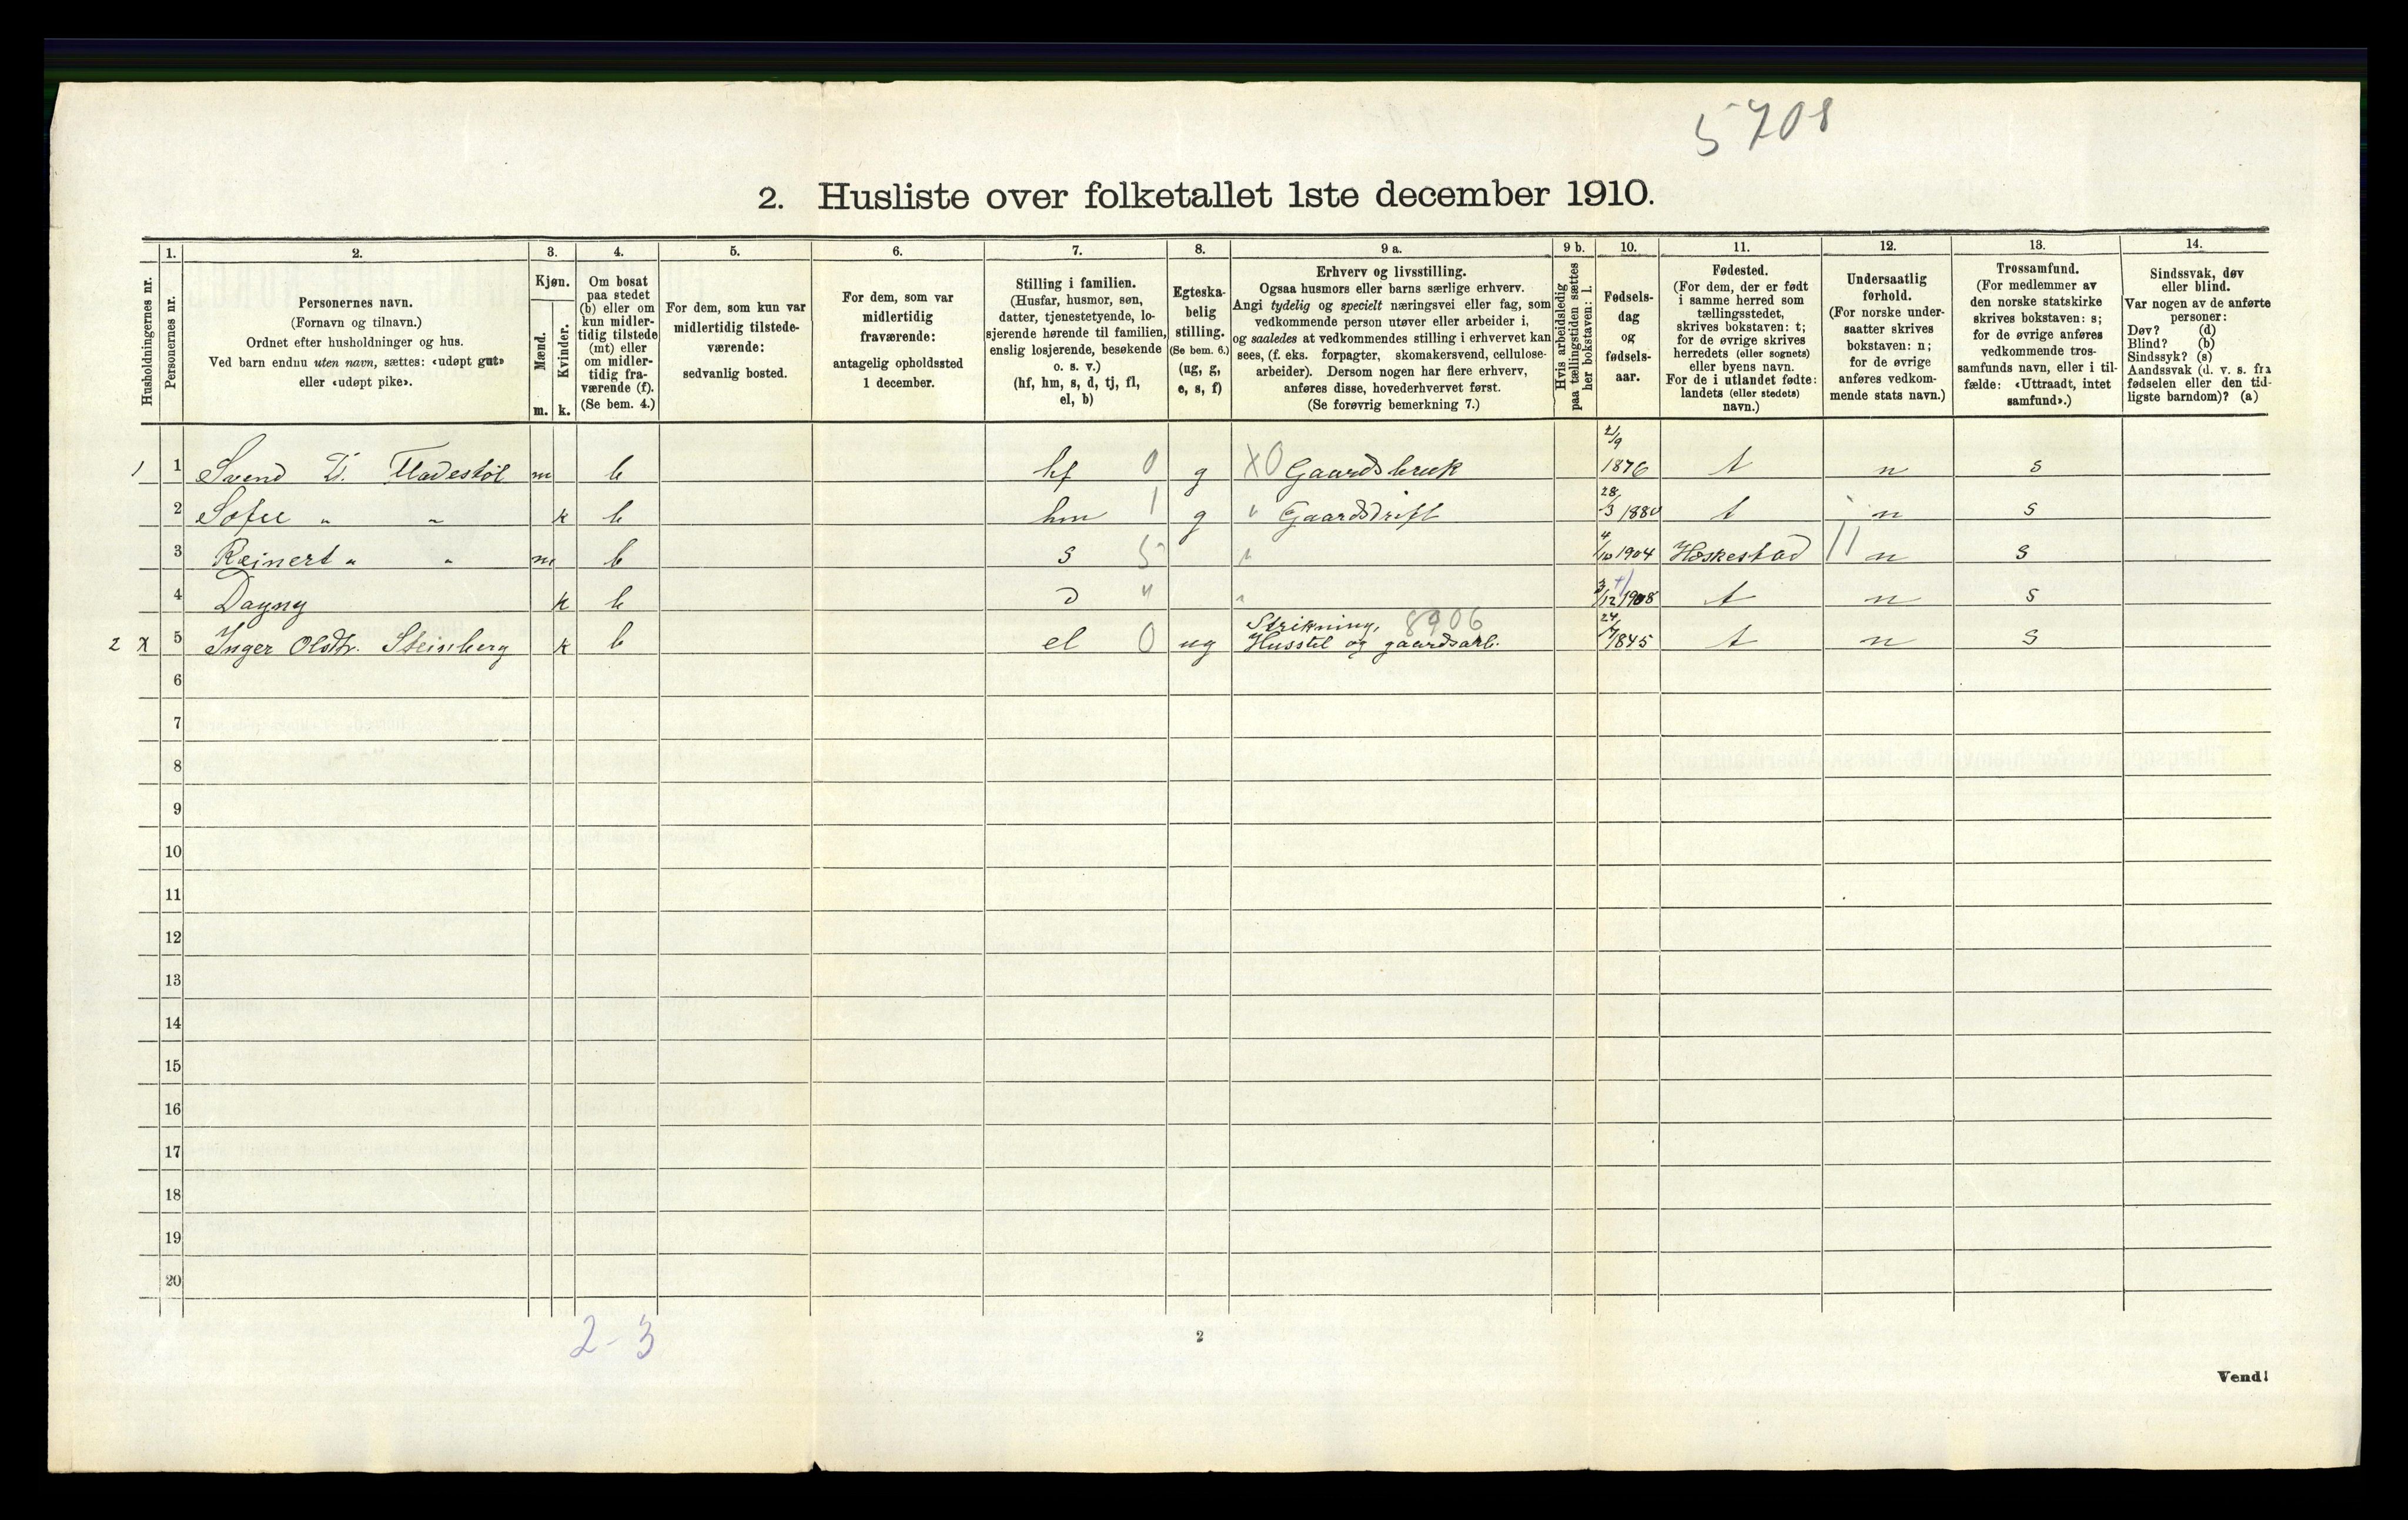 5708
2. Husliste over folketallet 1ste december 1910.
Husholdningernes nr.
1.
Personernes nr.
2.
Personernes navn.
(Fornavn og tilnavn.)
Ordnet efter husholdninger og hus.
Ved barn endnu uten navn, sættes: «udøpt gut»
eller «udøpt pike».
3.
Kjøn.
Mænd.
Kvinder.
m. k.
4.
Om bosat
paa stedet
(b) eller om
kun midler-
tidig tilstede
(mt) eller
om midler-
tidig fra-
værende (f).
(Se bem. 4.)
5.
For dem, som kun var
midlertidig tilstede-
værende:
sedvanlig bosted.
6.
For dem, som var
midlertidig
fraværende:
antagelig opholdssted
1 december.
7.
Stilling i familien.
(Husfar, husmor, søn,
datter, tjenestetyende, lo-
sjerende hørende til familien,
enslig losjerende, besøkende
o. s. v.)
(hf, hm, s, d, tj, fl,
el, b)
8.
Egteska-
belig
stilling.
(Se bem. 6.)
(ug, g,
e, s, f)
9 a.
Erhverv og livsstilling.
Ogsaa husmors eller barns særlige erhverv.
Angi tydelig og specielt næringsvei eller fag, som
vedkommende person utøver eller arbeider i,
og saaledes at vedkommendes stilling i erhvervet kan
sees, (f. eks. forpagter, skomakersvend, cellulose-
arbeider). Dersom nogen har flere erhverv,
anføres disse, hovederhvervet først.
(Se forøvrig bemerkning 7.)
9 b.
Hvis arbeidsledig
paa tællingstiden sættes
her bokstaven: l.
10.
Fødsels-
dag
og
fødsels-
aar.
11.
Fødested.
(For dem, der er født
i samme herred som
tællingsstedet,
skrives bokstaven: t;
for de øvrige skrives
herredets (eller sognets)
eller byens navn.
For de i utlandet fødte:
landets (eller stedets)
navn.)
12.
Undersaatlig
forhold.
(For norske under-
saatter skrives
bokstaven: n;
for de øvrige
anføres vedkom-
mende stats navn.)
13.
Trossamfund.
(For medlemmer av
den norske statskirke
skrives bokstaven: s;
for de øvrige anføres
vedkommende tros-
samfunds navn, eller i til-
fælde: «Uttraadt, intet
samfund».)
14.
Sindssvak, døv
eller blind.
Var nogen av de anførte
personer:
Døv? (d)
Blind? (b)
Sindssyk? (s)
Aandssvak (d. v. s. fra
fødselen eller den tid-
ligste barndom)? (a)
1 1 Svend Fladestøl m b hf 0 g X0 Gaardsbruk /9 1876 t n s
2 Sofie " " k b hm 1 g " Gaardsdrift 28/3 1880 t n s
3 Reinert " " m b s 5 " 4/10 1904 Heskestad 11 n s
4 Dagny k b d " " 3/12 1908 t n s
2 x 5 Inger Olsdtr. Steinberg k b el 0 ug Strikning, 8906
Husstel og gaardsarb. 24/ 1845 t n s
6
7
8
9
10
11
12
13
14
15
16
17
18
19
20
2-3
2
Vend!